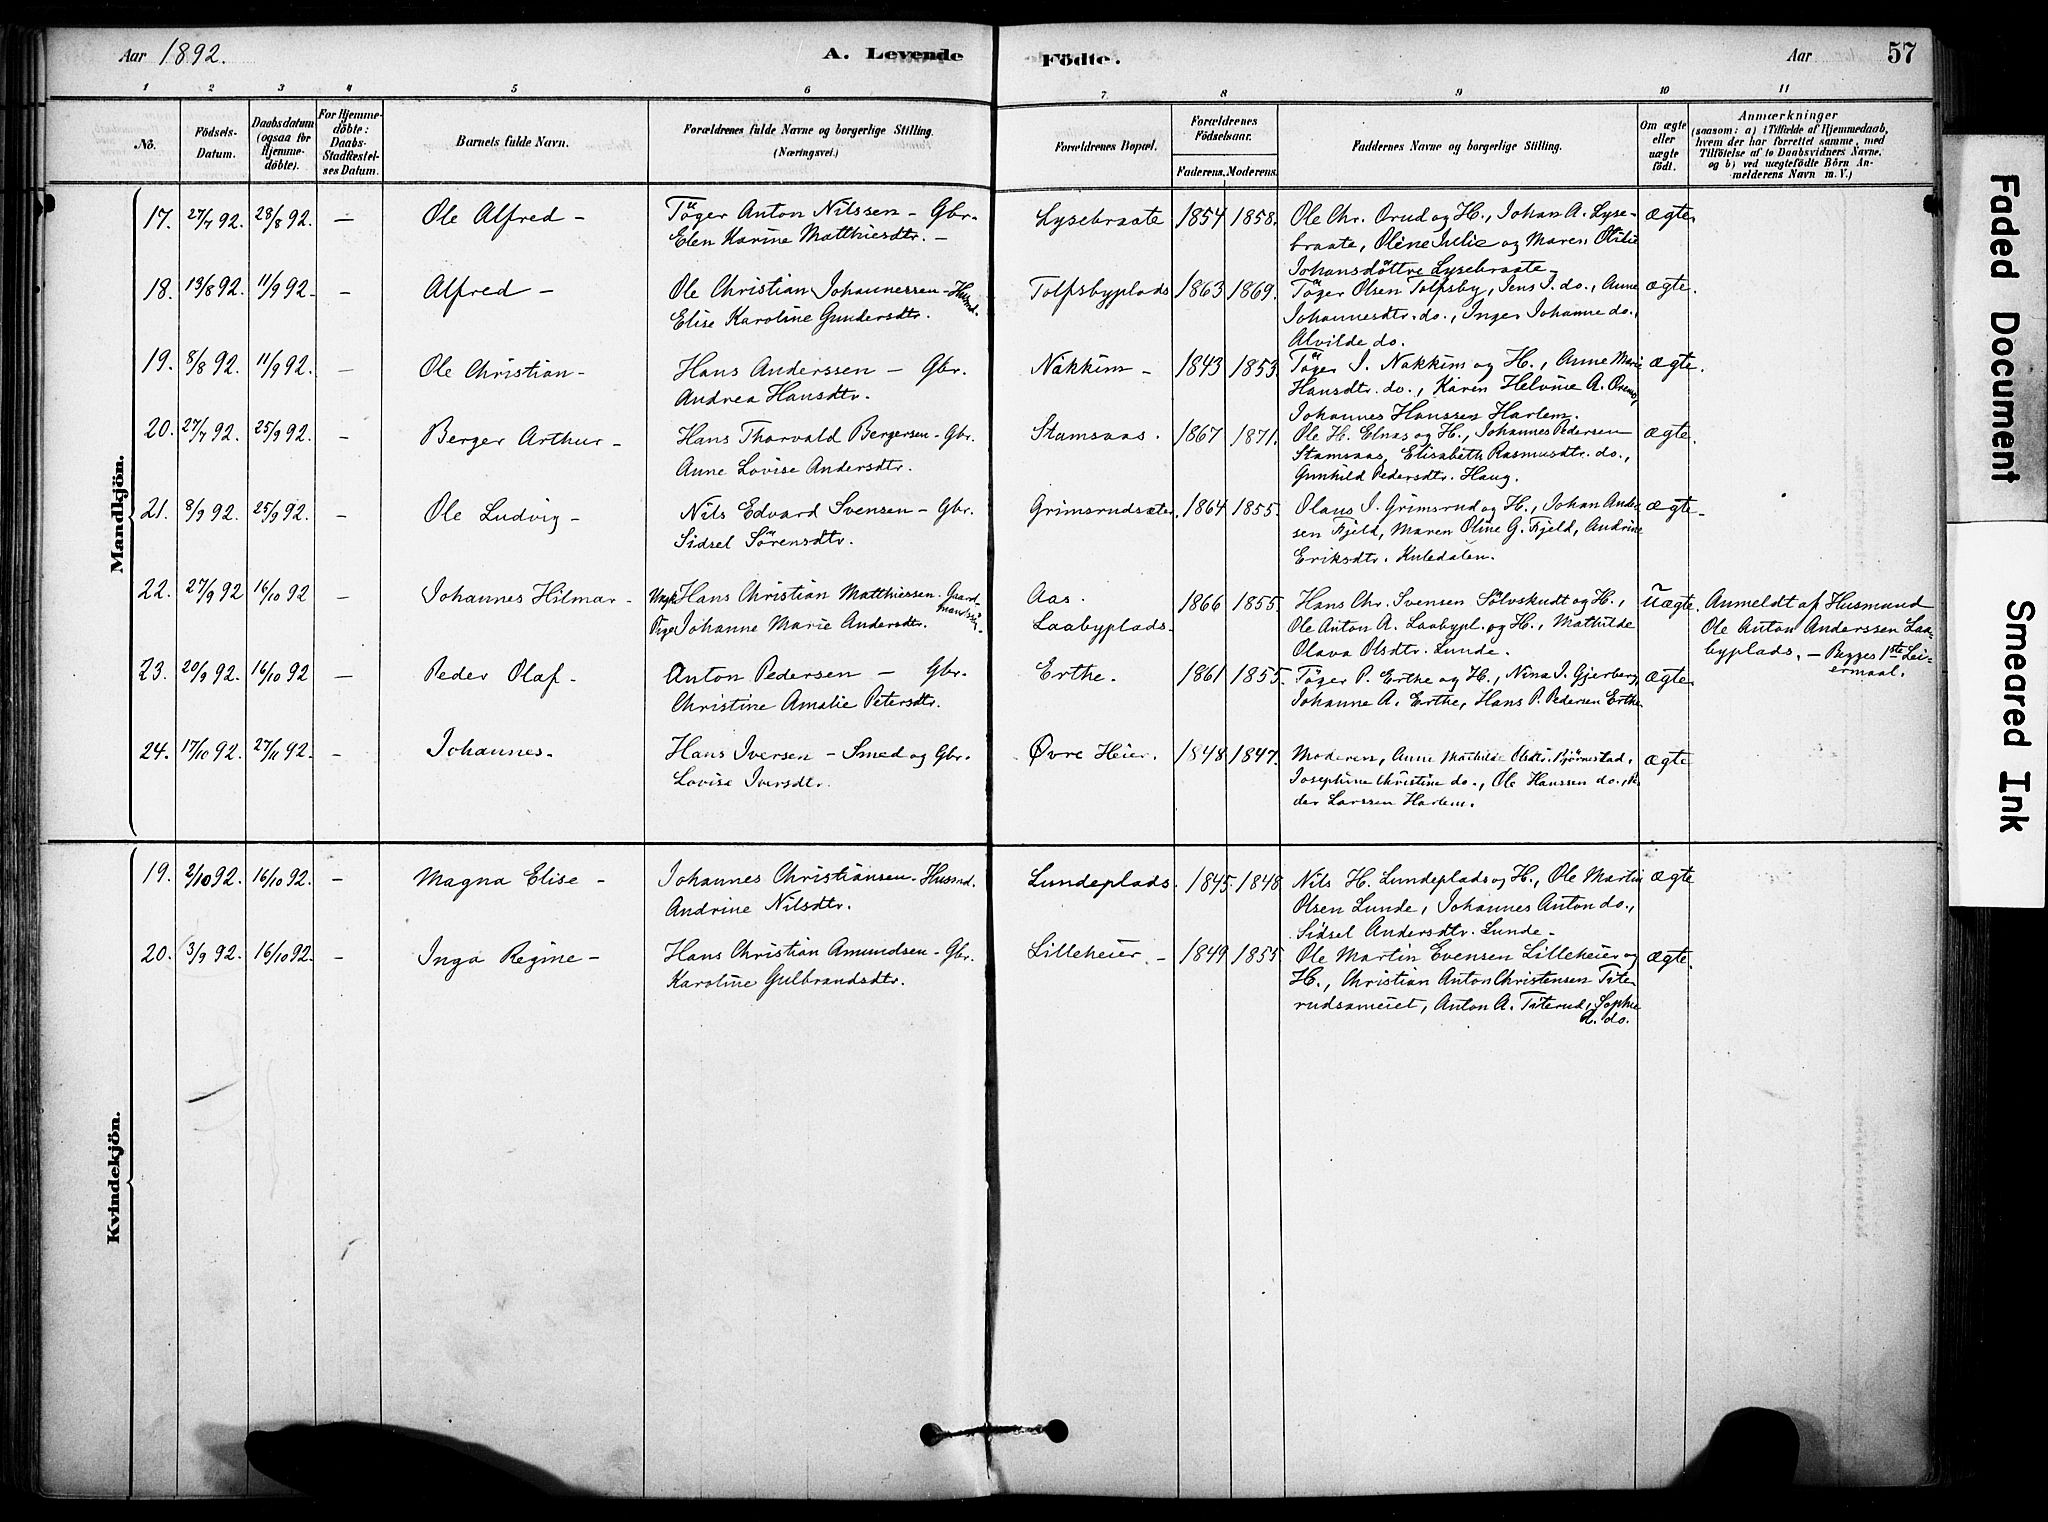 Aar 1892.
A. Levende
Födte.
Aar
57
1 2 3 4 5 6 7 8 9 10 11
No.
Födsels-
Datum.
Daabsdatum
(ogsaa for
Hjemme-
döbte).
For Hjemme-
döbte:
Daabs-
Stadfæstel-
ses Datum.
Barnets fulde Navn.
Forældrenes fulde Navne og borgerlige Stilling.
(Næringsvei.)
Forældrenes Bopæl.
Forældrenes
Födselsaar.
Faderens. Moderens.
Faddernes Navne og borgerlige Stilling.
Om ægte
eller
uægte
födt.
Anmærkninger
(saasom: a) i Tilfælde af Hjemmedaab,
hvem der har forrettet samme, med
Tilföielse af to Daabsvidners Navne,
og b) ved uægtefödte Börn An-
melderens Navn m. V.)
Mandkjön.
17. 27/7 92. 28/8 92. — Ole Alfred — Töger Anton Nilssen — Gbr. Lysebraate 1854 1858. Ole Chr. Orud og H., Johan A. Lyse- ægte.
Elen Karine Matthiesdtr. — braate, Oline Julie og Maren Otilie
Johansdöttre Lysebraate —
18. 13/8 92. 11/9 92. — Alfred — Ole Christian Johannessen — Husmd. Tolfsbyplads 1863 1869. Töger Olsen Tolfsby, Jens J. do., Anne ægte.
Elise Karoline Gundersdtr. Johannesdtr. do., Inger Johanne do.,
Alvilde do.
19. 8/8 92. 11/9 92. — Ole Christian — Hans Anderssen — Gbr. Nakkim — 1843 1853. Töger J. Nakkim og H., Anne Marie ægte.
Andrea Hansdtr. Hansdtr. do., Karen Helvine A.
Johannes Hanssen Harlem.
20. 27/7 92. 25/9 92. — Berger Arthur — Hans Thorvald Bergersen — Gbr. Stamsaas. 1867 1871. Ole H. Elnæs og H., Johannes Pedersen ægte.
Anne Lovise Andersdtr. Stamsaas, Elisabeth Rasmusdtr. do.,
Gunhild Pedersdtr. Haug.
21. 8/9 92. 25/9 92. — Ole Ludvig — Nils Edvard Svensen — Gbr. Grimsrudsæter. 1864 1855. Olaus J. Grimsrud og H., Johan Ander- ægte.
Sidsel Sörensdtr. sen Fjeld, Maren Oline G. Fjeld, Andrine
Eriksdtr. Kuledalen.
22. 27/9 92 16/10 92 — Johannes Hilmar — Ungk. Hans Christian Matthiessen. Gaard- Aas. 1866 1855. Hans Chr. Svensen Sölvskudt og H., Uægte. Anmeldt af Husmand
mandssön.
Pige Johanne Marie Andersdtr. Laabyplads. Ole Anton A. Laabypl. og H., Mathilde Ole Anton Anderssen Laa-
Olava Olsdtr. Lunde. byplads. — Begges 1ste Lei-
ermaal.
23. 20/9 92 16/10 92 — Peder Olaf — Anton Pedersen — Gbr. Erthe. 1861 1855. Töger P. Erthe og H., Nina J. Gjerberg, ægte.
Christine Amalie Petersdtr. Johanne A. Erthe, Hans P. Pedersen Erthe.
24. 17/10 92. 27/11 92 — Johannes — Hans Iversen — Smed og Gbr. Øvre Heier. 1848 1847. Moderen, Anne Mathilde Olsdtr. Bjørnestad, ægte
Lovise Iversdtr. Josephine Christine do., Ole Hanssen do., Pe-
der Larssen Harlem.
Kvindekjön.
19. 2/10 92. 16/10 92. — Magna Elise — Johannes Christiansen — Husmd. Lundeplads. 1845. 1848. Nils H. Lundeplads og H., Ole Martin ægte
Andrine Nilsdtr. Olsen Lunde, Johannes Anton do.,
Sidsel Andersdtr. Lunde —
20. 3/9 92. 16/10 92. — Inga Regine — Hans Christian Amundsen — Gbr. Lilleheier. — 1849 1855. Ole Martin Evensen Lilleheier og ægte.
Karoline Gulbrandsdtr. H., Christian Anton Christensen Täte-
rudsameiet, Anton A. Täterud, Sophie
A. do.
Faded Document
Smeared Ink